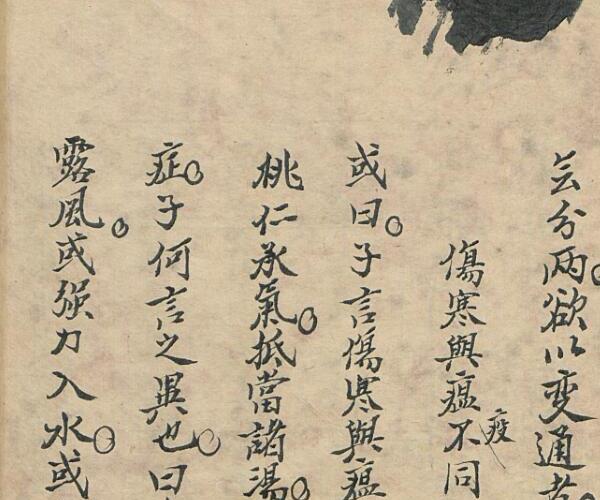 云分兩欲以变通者
傷寒與瘟疫不同
或曰子言傷寒與瘟
桃仁承氣抵當諸湯
症子何言之異也曰
露風或强力入水或